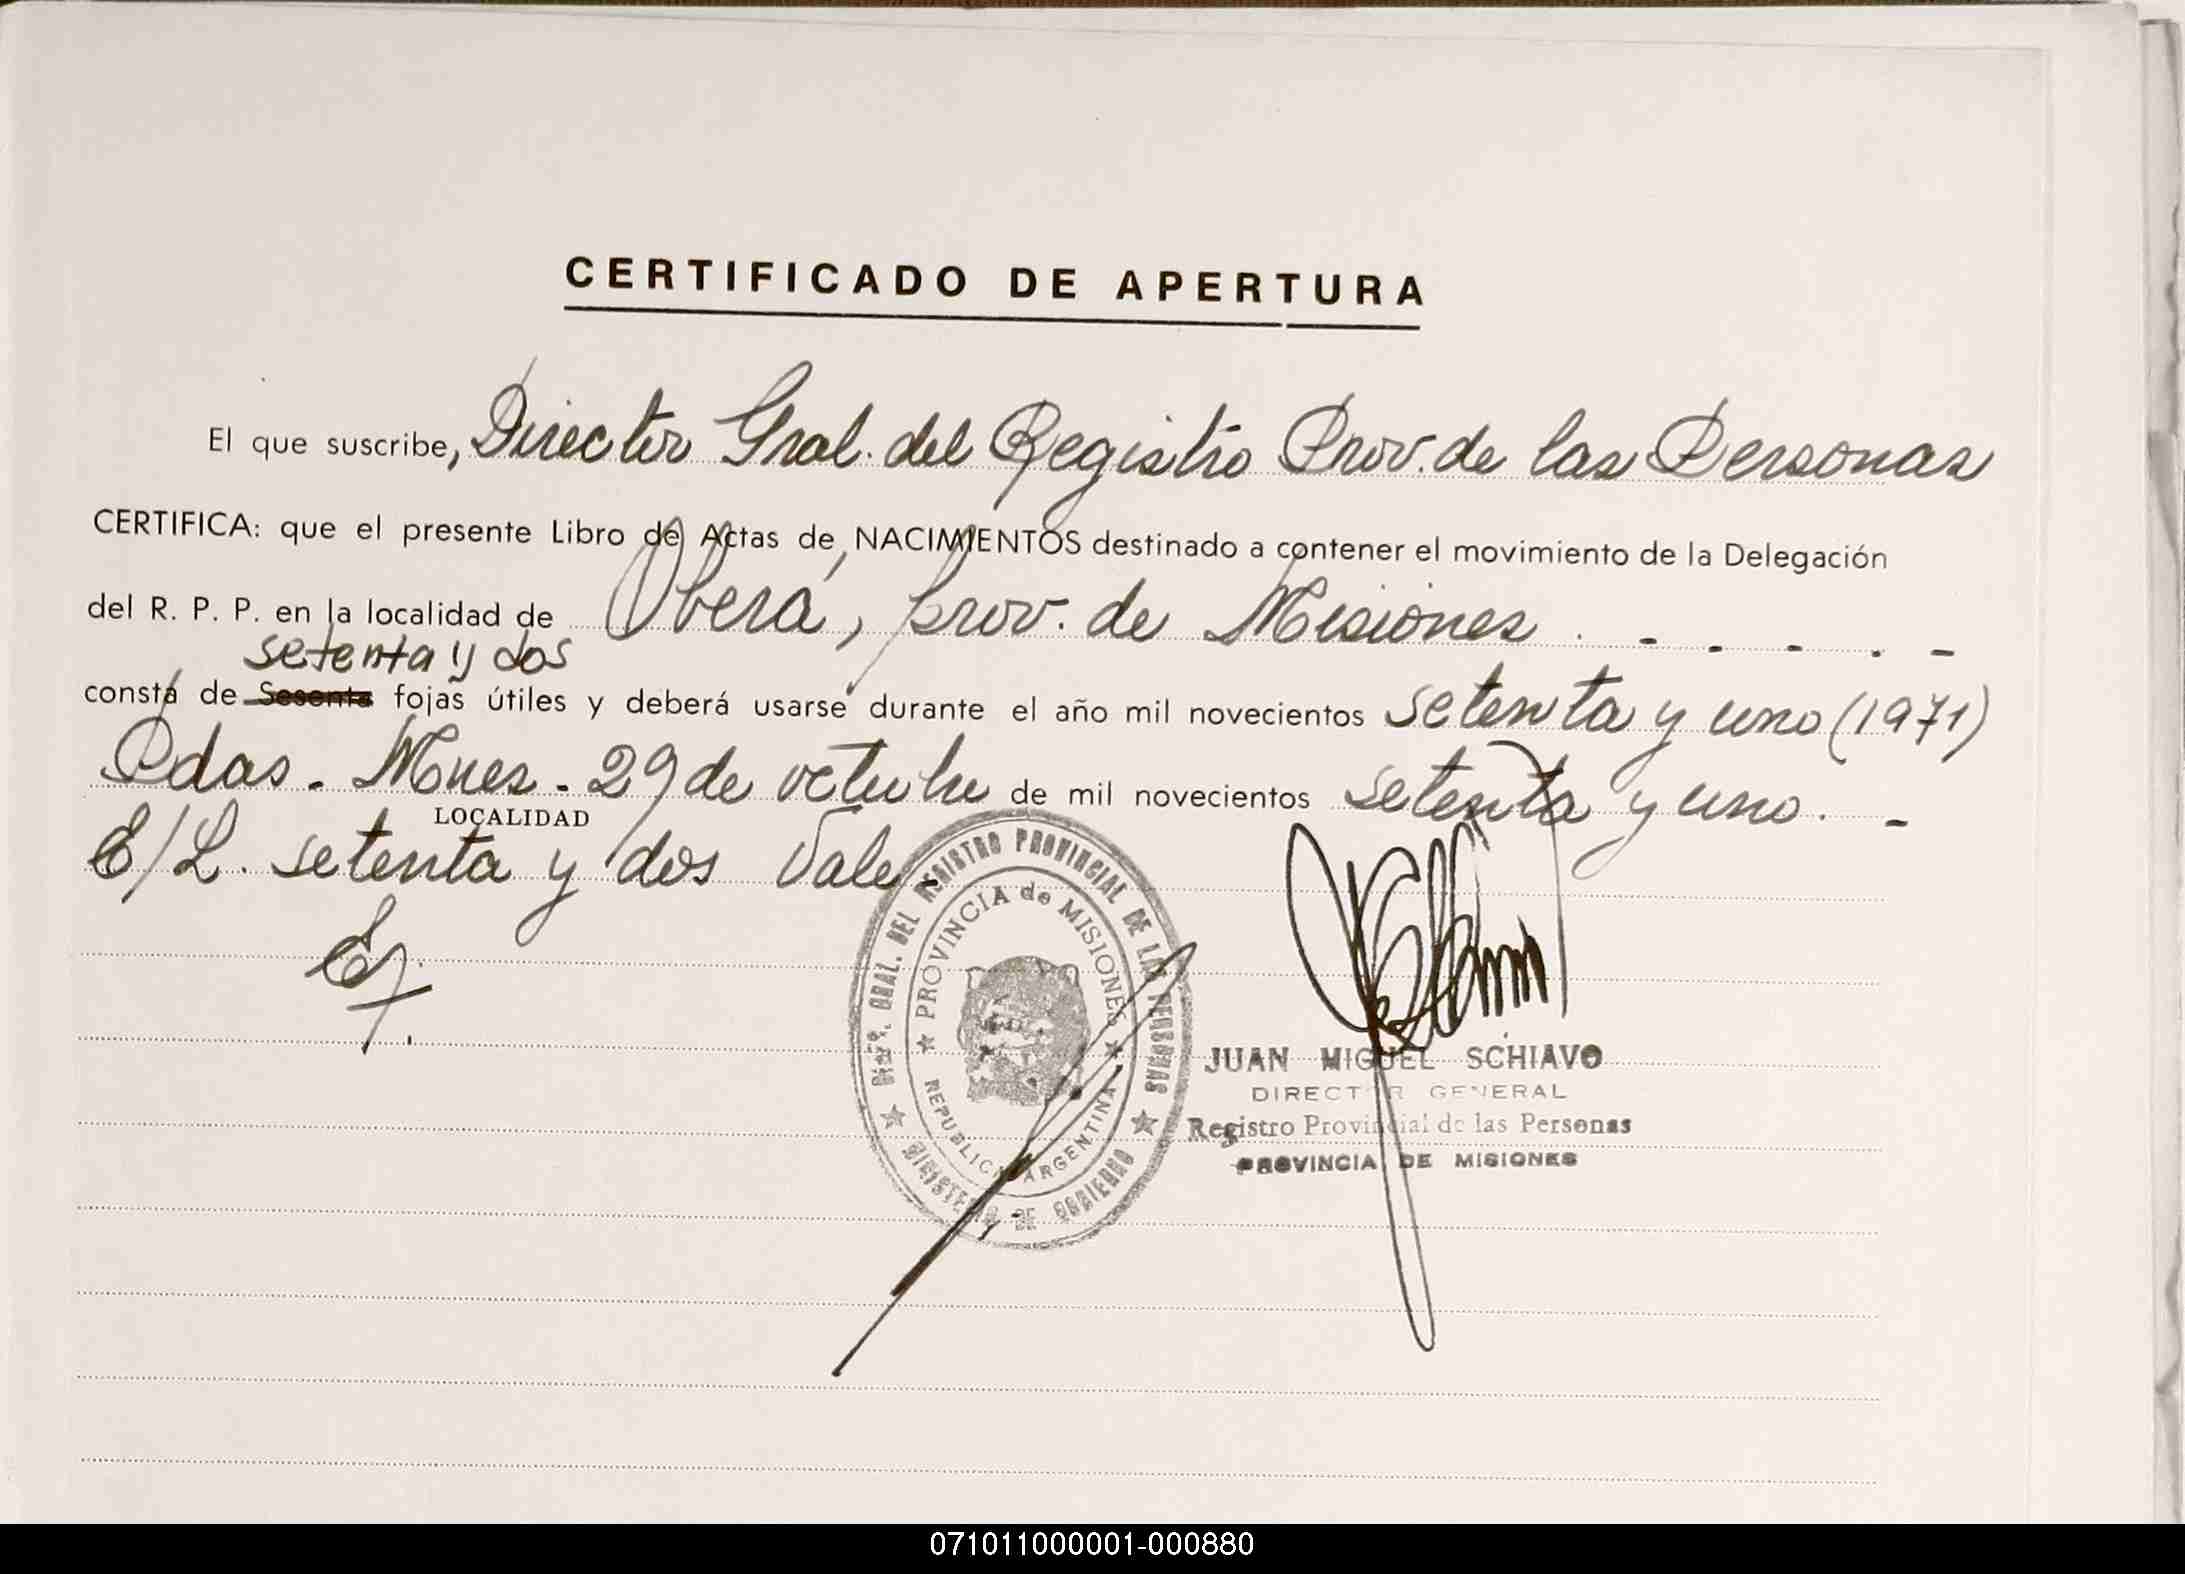 CERTIFICADO DE APERTURA
El que suscribe, Director Gral. del Registro Prov. de las Personas
CERTIFICA: que el presente Libro de Actas de NACIMIENTOS destinado a contener el movimiento de la Delegación
del R. P. P. en la localidad de Oberá, Prov. de Misiones . - . - . -
setenta y dos
consta de Sesenta fojas útiles y deberá usarse durante el año mil novecientos setenta y uno (1971)
Pdas. Mnes. 29 de octubre de mil novecientos setenta y uno. -
LOCALIDAD
E/L. setenta y dos Vale
DIREC. GRAL. DEL REGISTRO PROVINCIAL DE LAS PERSONAS
PROVINCIA de MISIONES
REPUBLICA ARGENTINA
MINISTERIO DE GOBIERNO
JUAN MIGUEL SCHIAVO
DIRECTOR GENERAL
Registro Provincial de las Personas
PROVINCIA DE MISIONES
071011000001-000880